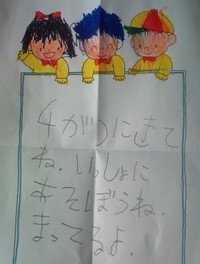 4がつにきて
ね.いっしょに
あそぼうね.
まってるよ.